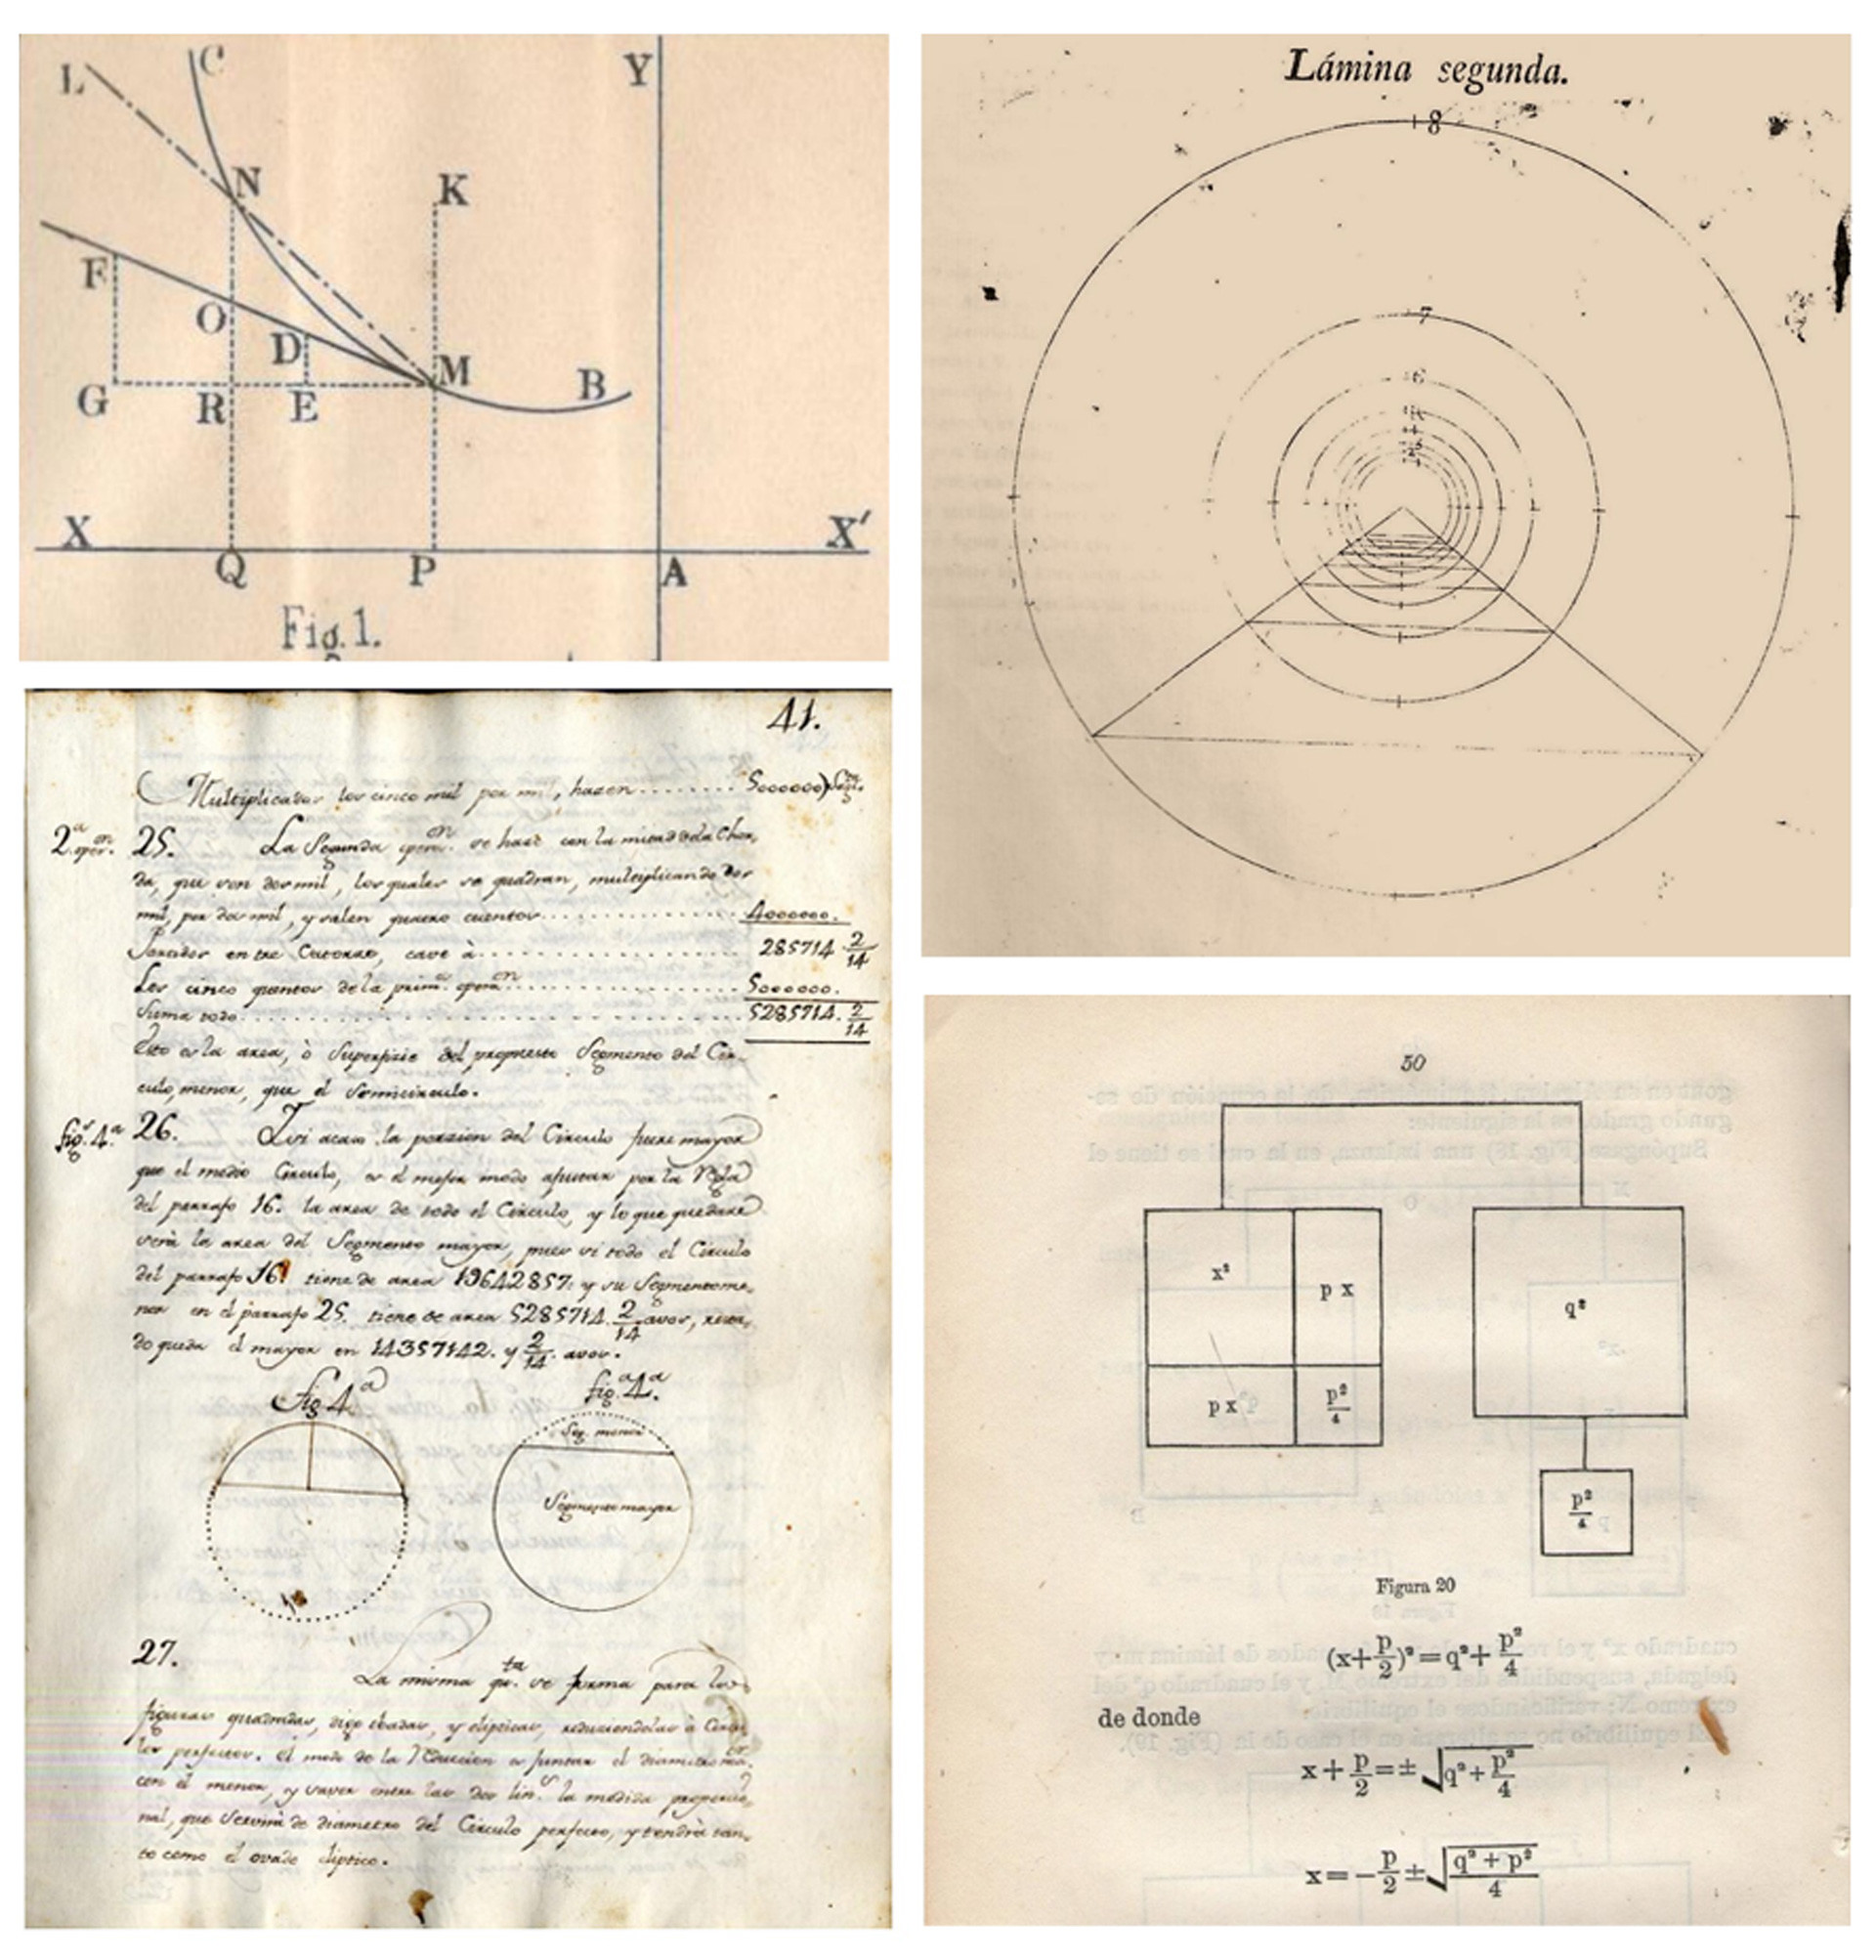 L
C
Y
N
K
F
O
D
M
B
G
R
E
X
X'
Q
P
A
Fig. 1.
Lámina segunda.
8
7
6
4
3
2
41.
Multiplicados los cinco mil por mil, hazen........ 5000000)
2.ª oper.on 25. La Segunda oper.on se haze con la mitad dela Chor,
da, que son dos mil, los quales se quadran, multiplicando dos
mil, por dos mil, y valen quatro cuentos............ 4000000.
Partidos entre Catorze, cave à............ 285714 2/14
Los cinco quentos dela prim.a oper.on............ 5000000.
Suma todo............ 5285714. 2/14
Esto es la area, ò Superfizie del propuesto Segmento del Cir-
culo, menor, que el Semicirculo.
fig.ª 4.ª 26. I si acaso la porzion del Circulo fuere mayor
que el medio Circulo, es el mejor modo ajustar por la Regla
del parrafo 16. la area de todo el Circulo, y lo que quedare
serà la area del Segmento mayor, pues si todo el Circulo
del parrafo 16. tiene de area 19642857. y su Segmento me,
nor en el parrafo 25. tiene de area 5285714. 2/14 avos, resta,
do queda el mayor en 14357142. y 2/14. avos.
Fig 4ª
fig.ª 4.ª
Seg. menor
Segmento mayor
27.
La misma q.ta se forma para las
figuras quadradas, digo obadas, y elipticas, reduciendolas à Circu
los perfectos. el modo de la Reduccion es juntar el diametro ma.or
con el menor, y sacar entre las dos lin.s la medida proporcio,
nal, que Servirà de diametro del Circulo perfecto, y tendrà tan,
to como el ovado eliptico.
50
x²
p x
q²
p x
p²/4
p²/4
Figura 20
(x+p/2)²=q²+p²/4
de donde
x+p/2=±√q²+p²/4
x=-p/2±√q²+p²/4